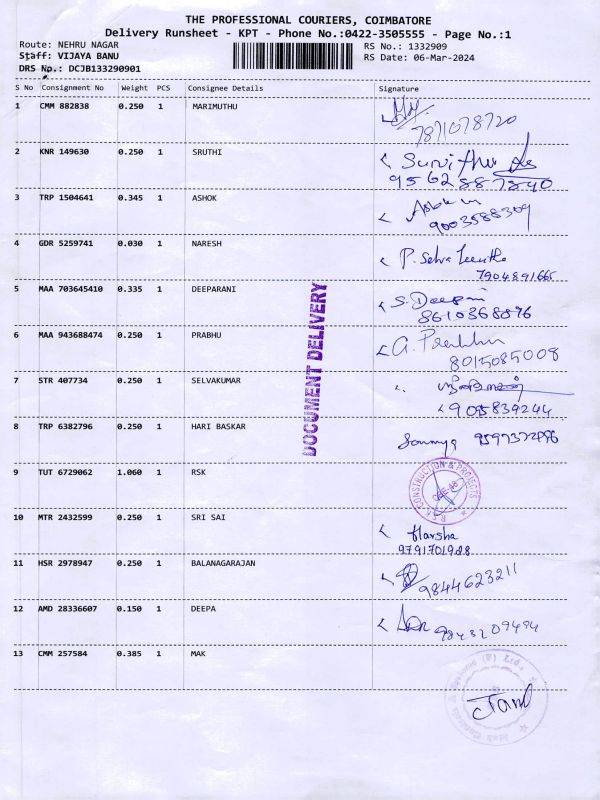 THE PROFESSIONAL COURIERS, COIMBATORE
Delivery Runsheet - KPT - Phone No.:0422-3505555 - Page No.:1
Route: NEHRU NAGAR RS No.: 1332909
Staff: VIJAYA BANU RS Date: 06-Mar-2024
DRS No.: DCJB133290901
S No Consignment No Weight PCS Consignee Details Signature
1 CMM 882838 0.250 1 MARIMUTHU
7871078720
2 KNR 149630 0.250 1 SRUTHI
9562887840
3 TRP 1504641 0.345 1 ASHOK Ashok
9003588309
4 GDR 5259741 0.030 1 NARESH
7904891665
5 MAA 703645410 0.335 1 DEEPARANI S. Deepa
8610368876
6 MAA 943688474 0.250 1 PRABHU G. Prabhu
8015085008
7 STR 407734 0.250 1 SELVAKUMAR
9095839244
8 TRP 6382796 0.250 1 HARI BASKAR Sowmya
9 TUT 6729062 1.060 1 RSK
R.S.K. CONSTRUCTION & PROJECTS
10 MTR 2432599 0.250 1 SRI SAI Harsha
9791701928
11 HSR 2978947 0.250 1 BALANAGARAJAN
9844623211
12 AMD 28336607 0.150 1 DEEPA
9843209494
13 CMM 257584 0.385 1 MAK
DOCUMENT DELIVERY